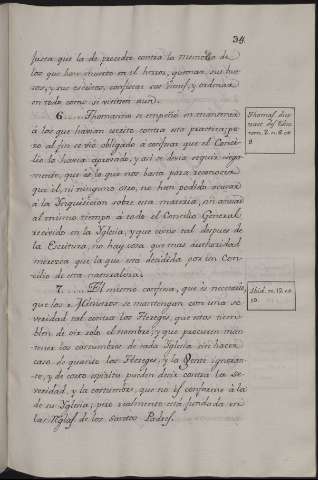 34
justa que la de proceder contra la memoria de
los que han muerto en el herror, queman sus hue-
sos, y sus escritos, confiscar sus bienes, y ordenar
en todo como si vivieran aun.
6.... Thomasino se empeñó en
à los que havian escrito contra esta practica; pe-
ro al fin se vió obligado à confesar que el Conci-
lio la havia aprovado, y asi se devia seguir ciega-
mente, que es lo que nos basta para reconocer
que él, ni ninguno otro, no han podido acusar
à la Ynquisicion sobre esta materia, sin acusar
al mismo tiempo à todo el Concilio General
recivido en la Yglesia, y que como tal despues de
la Escritura, no hay cosa que mas authoridad
merezca que la que esta decidida por un Con-
cilio de esta naturaleza.
7..... El mismo confiesa, que es necesario
que los Ministros se mantengan con una se-
veridad tal contra los Hereges, que estos tiem-
blen de oir solo el nombre, y que procuren man-
tener las costumbres de cada Yglesia sin hacer
caso de quanto los Hereges, y la Gente ignoran-
te, y de corto espiritu pueden decir contra la se-
veridad, y la costumbre, que no es conforme à la
de su Yglesia; pero realmente está fundada en
las Reglas de los Santos Padres.
Thomas.
tom. 2. n. 8. co
9
Ibid. n. 12. co
10.